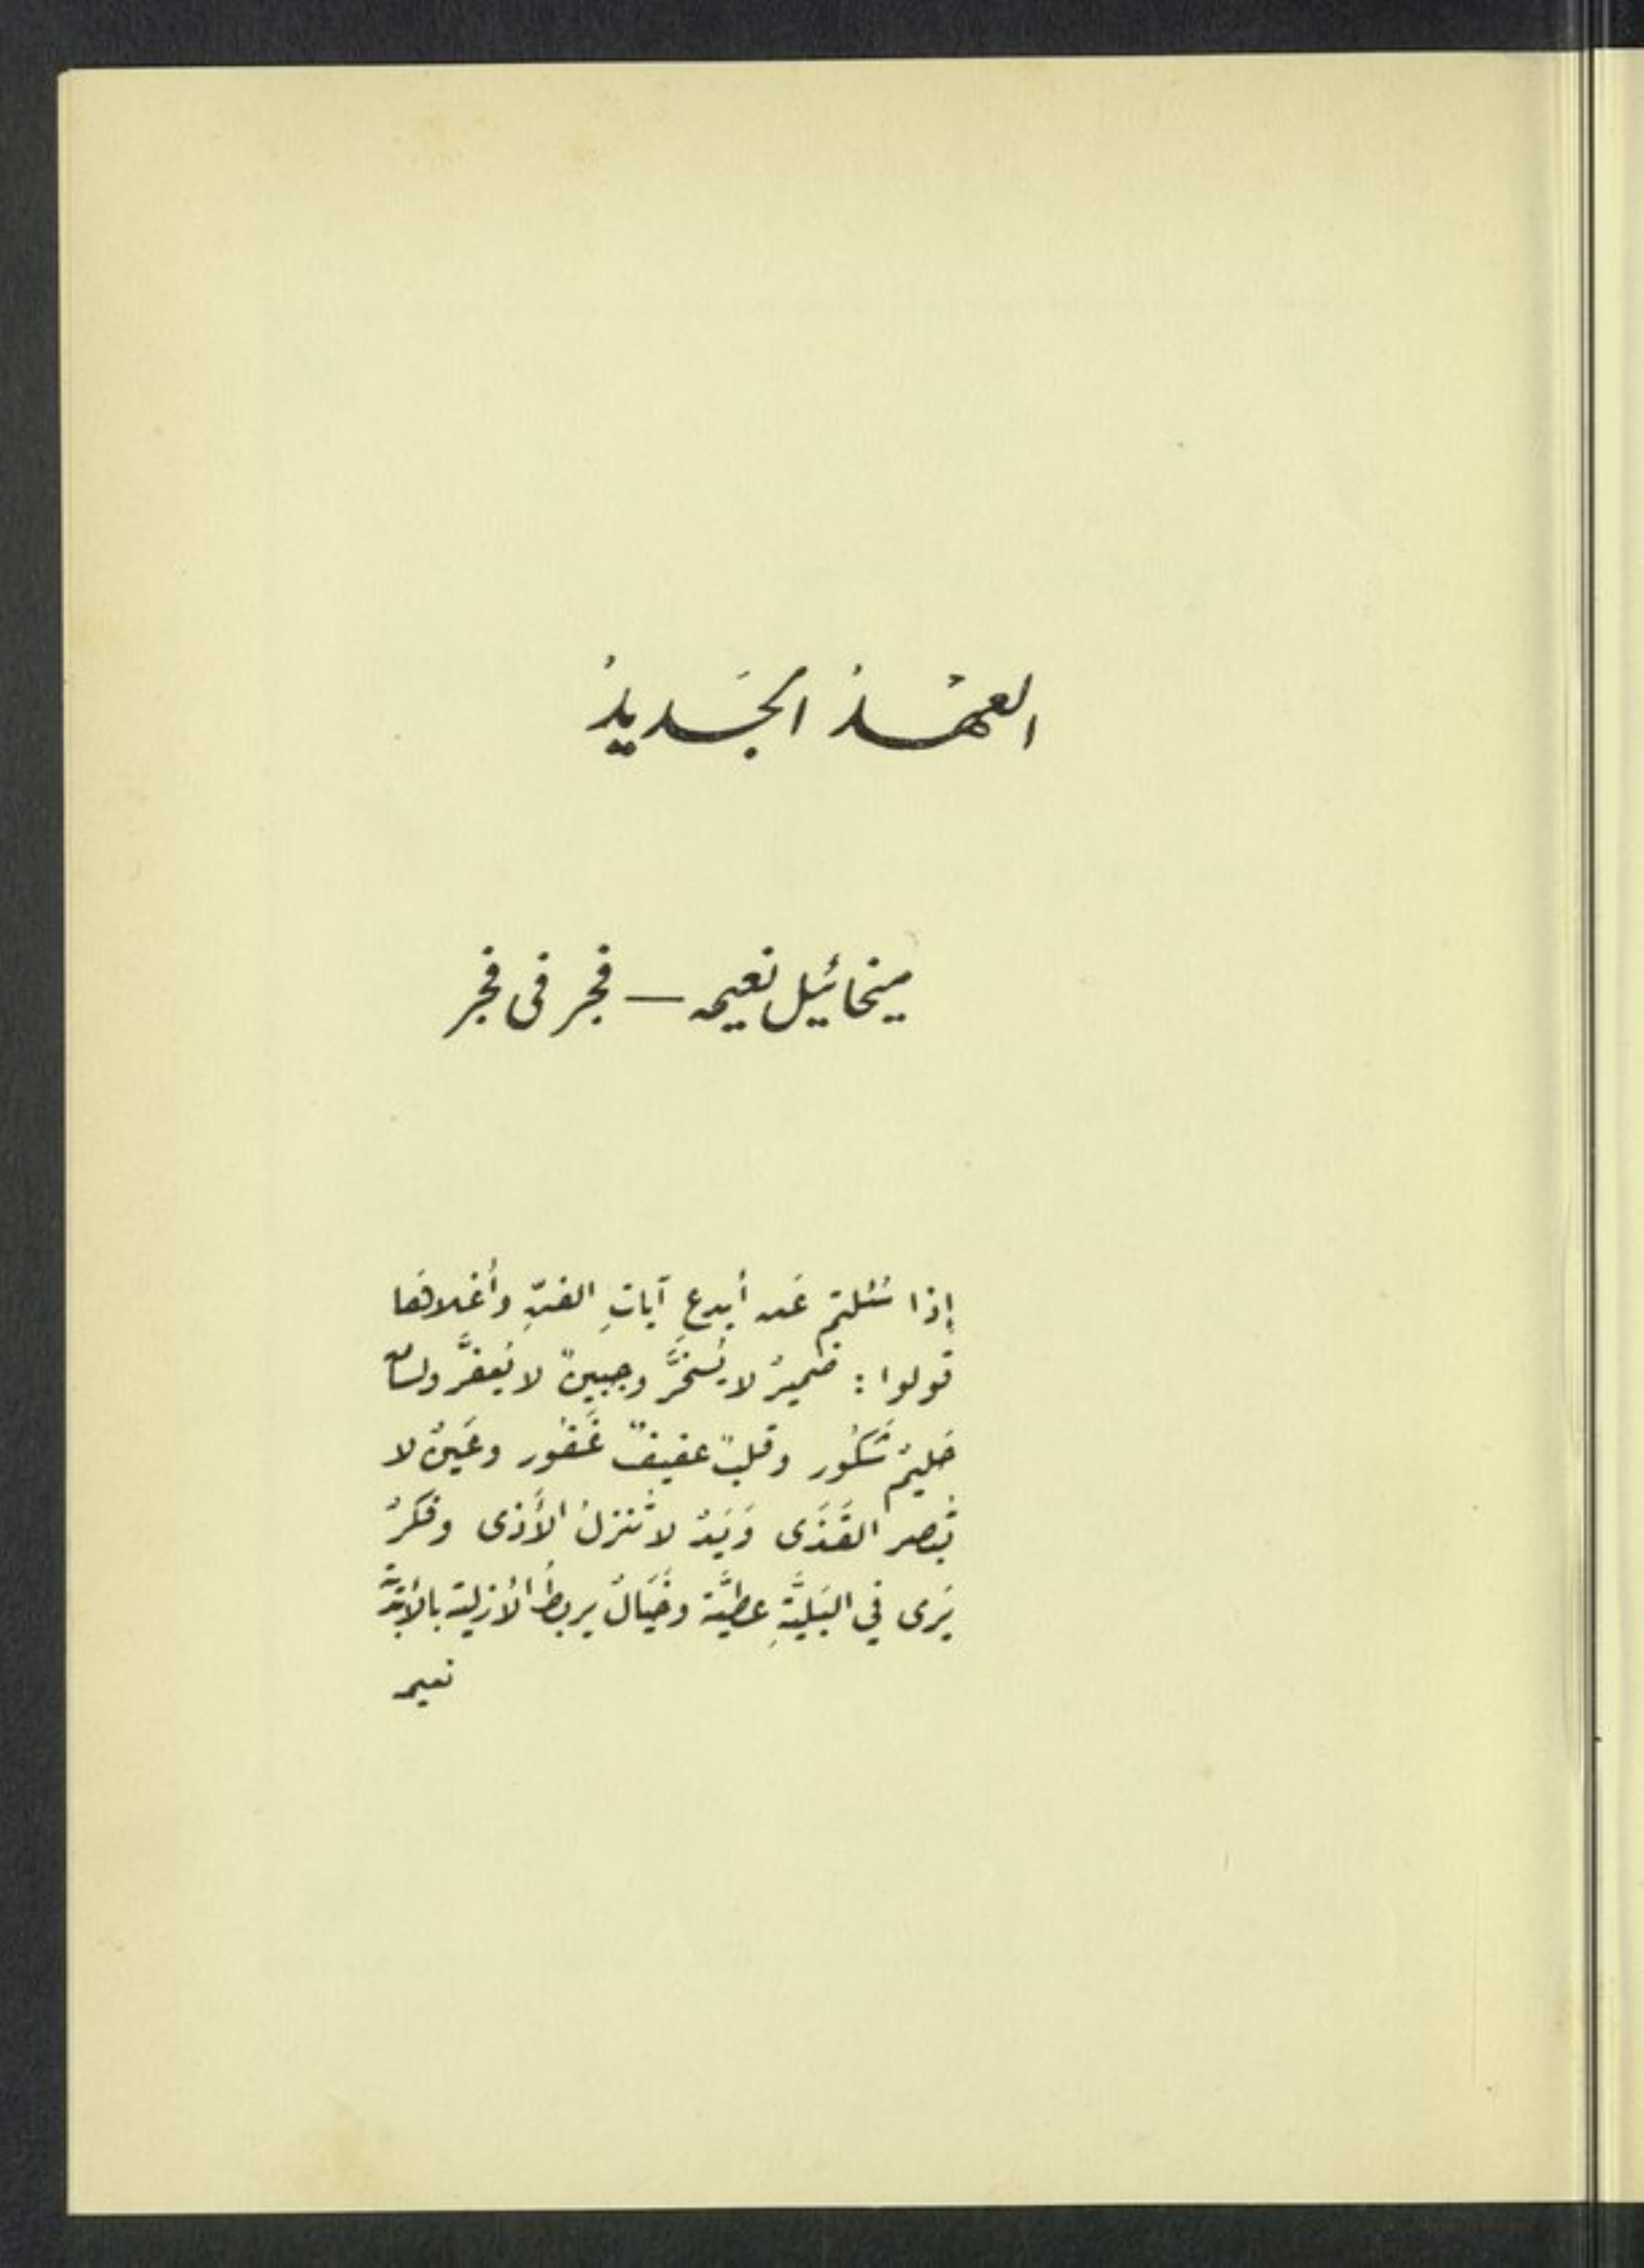 العهْدُ الجَديدُ
ميخائيل نعيمه — فجر فى فجر
إذا سُئلتم عَن أبدعِ آياتِ الفنّ وأغلاهَا
قولوا : ضميرٌ لا يُسَخَّرُ وجبينٌ لا يُعفَّر ولسانٌ
حَليمٌ شَكُور وقلبٌ عفيفٌ غَفُور وعَينٌ لا
تُبصر القَذَى وَيَدٌ لا تُنزلُ الأَذى وفكرٌ
يَرى في البَليَّةِ عطيَّة وخَيَالٌ يربطُ الأزلية بالأبَديَّة
نعيمه